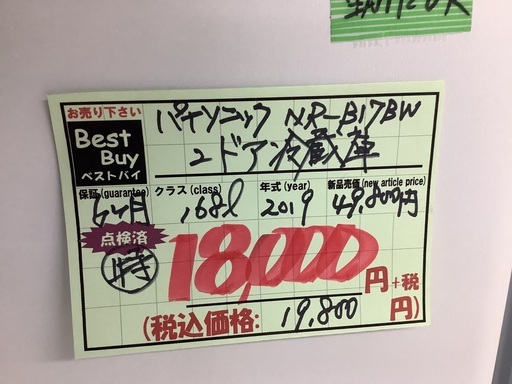 お売り下さい
Best Buy
ベストバイ
パナソニック NR-B17BW
2ドア冷蔵庫
保証(guarantee) クラス(class) 年式(year) 新品売価(new article price)
6ヶ月 168ℓ 2019 49,800円
点検済
特
18,000円+税
(税込価格: 19,800円)